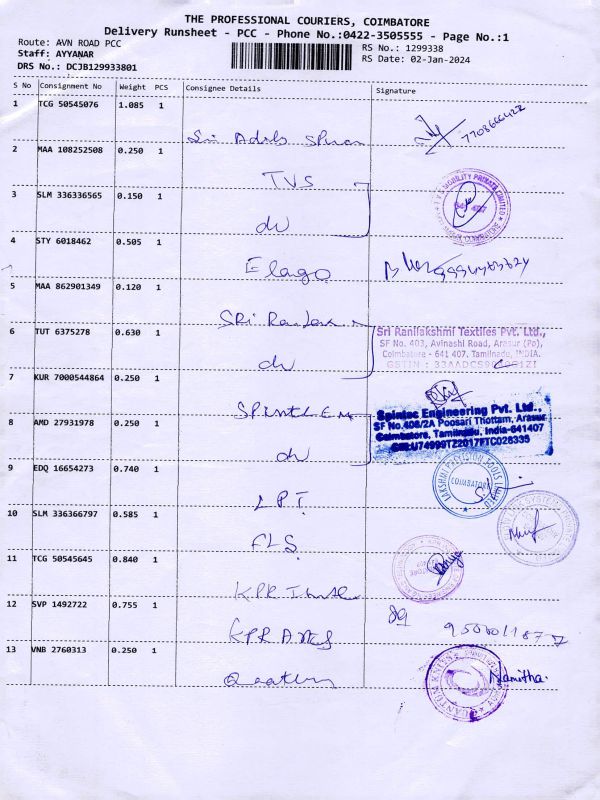 THE PROFESSIONAL COURIERS, COIMBATORE
Delivery Runsheet - PCC - Phone No.:0422-3505555 - Page No.:1
Route: AVN ROAD PCC
RS No.: 1299338
Staff: AYYANAR
RS Date: 02-Jan-2024
DRS No.: DCJB129933801
S No Consignment No Weight PCS Consignee Details Signature
1 TCG 50545076 1.085 1
Sri
2 MAA 108252508 0.250 1
TVS
3 SLM 336336565 0.150 1
4 STY 6018462 0.505 1
Elago
5 MAA 862901349 0.120 1
SRI
6 TUT 6375278 0.630 1
Sri Ranilakshmi Textiles Pvt. Ltd.,
SF No. 403, Avinashi Road, Arasur (Po),
Coimbatore - 641 407. Tamilnadu, INDIA.
GSTIN : 33AADCS
7 KUR 7000544864 0.250 1
Spintec Engineering Pvt. Ltd.,
SF No.406/2A Poosari Thottam, Arasur
Coimbatore, Tamilnadu, India-641407
8 AMD 27931978 0.250 1
9 EDQ 16654273 0.740 1
COIMBATORE
LPT
10 SLM 336366797 0.585 1
FLS
11 TCG 50545645 0.840 1
KPR
12 SVP 1492722 0.755 1
KPR
13 VNB 2760313 0.250 1
Namitha.